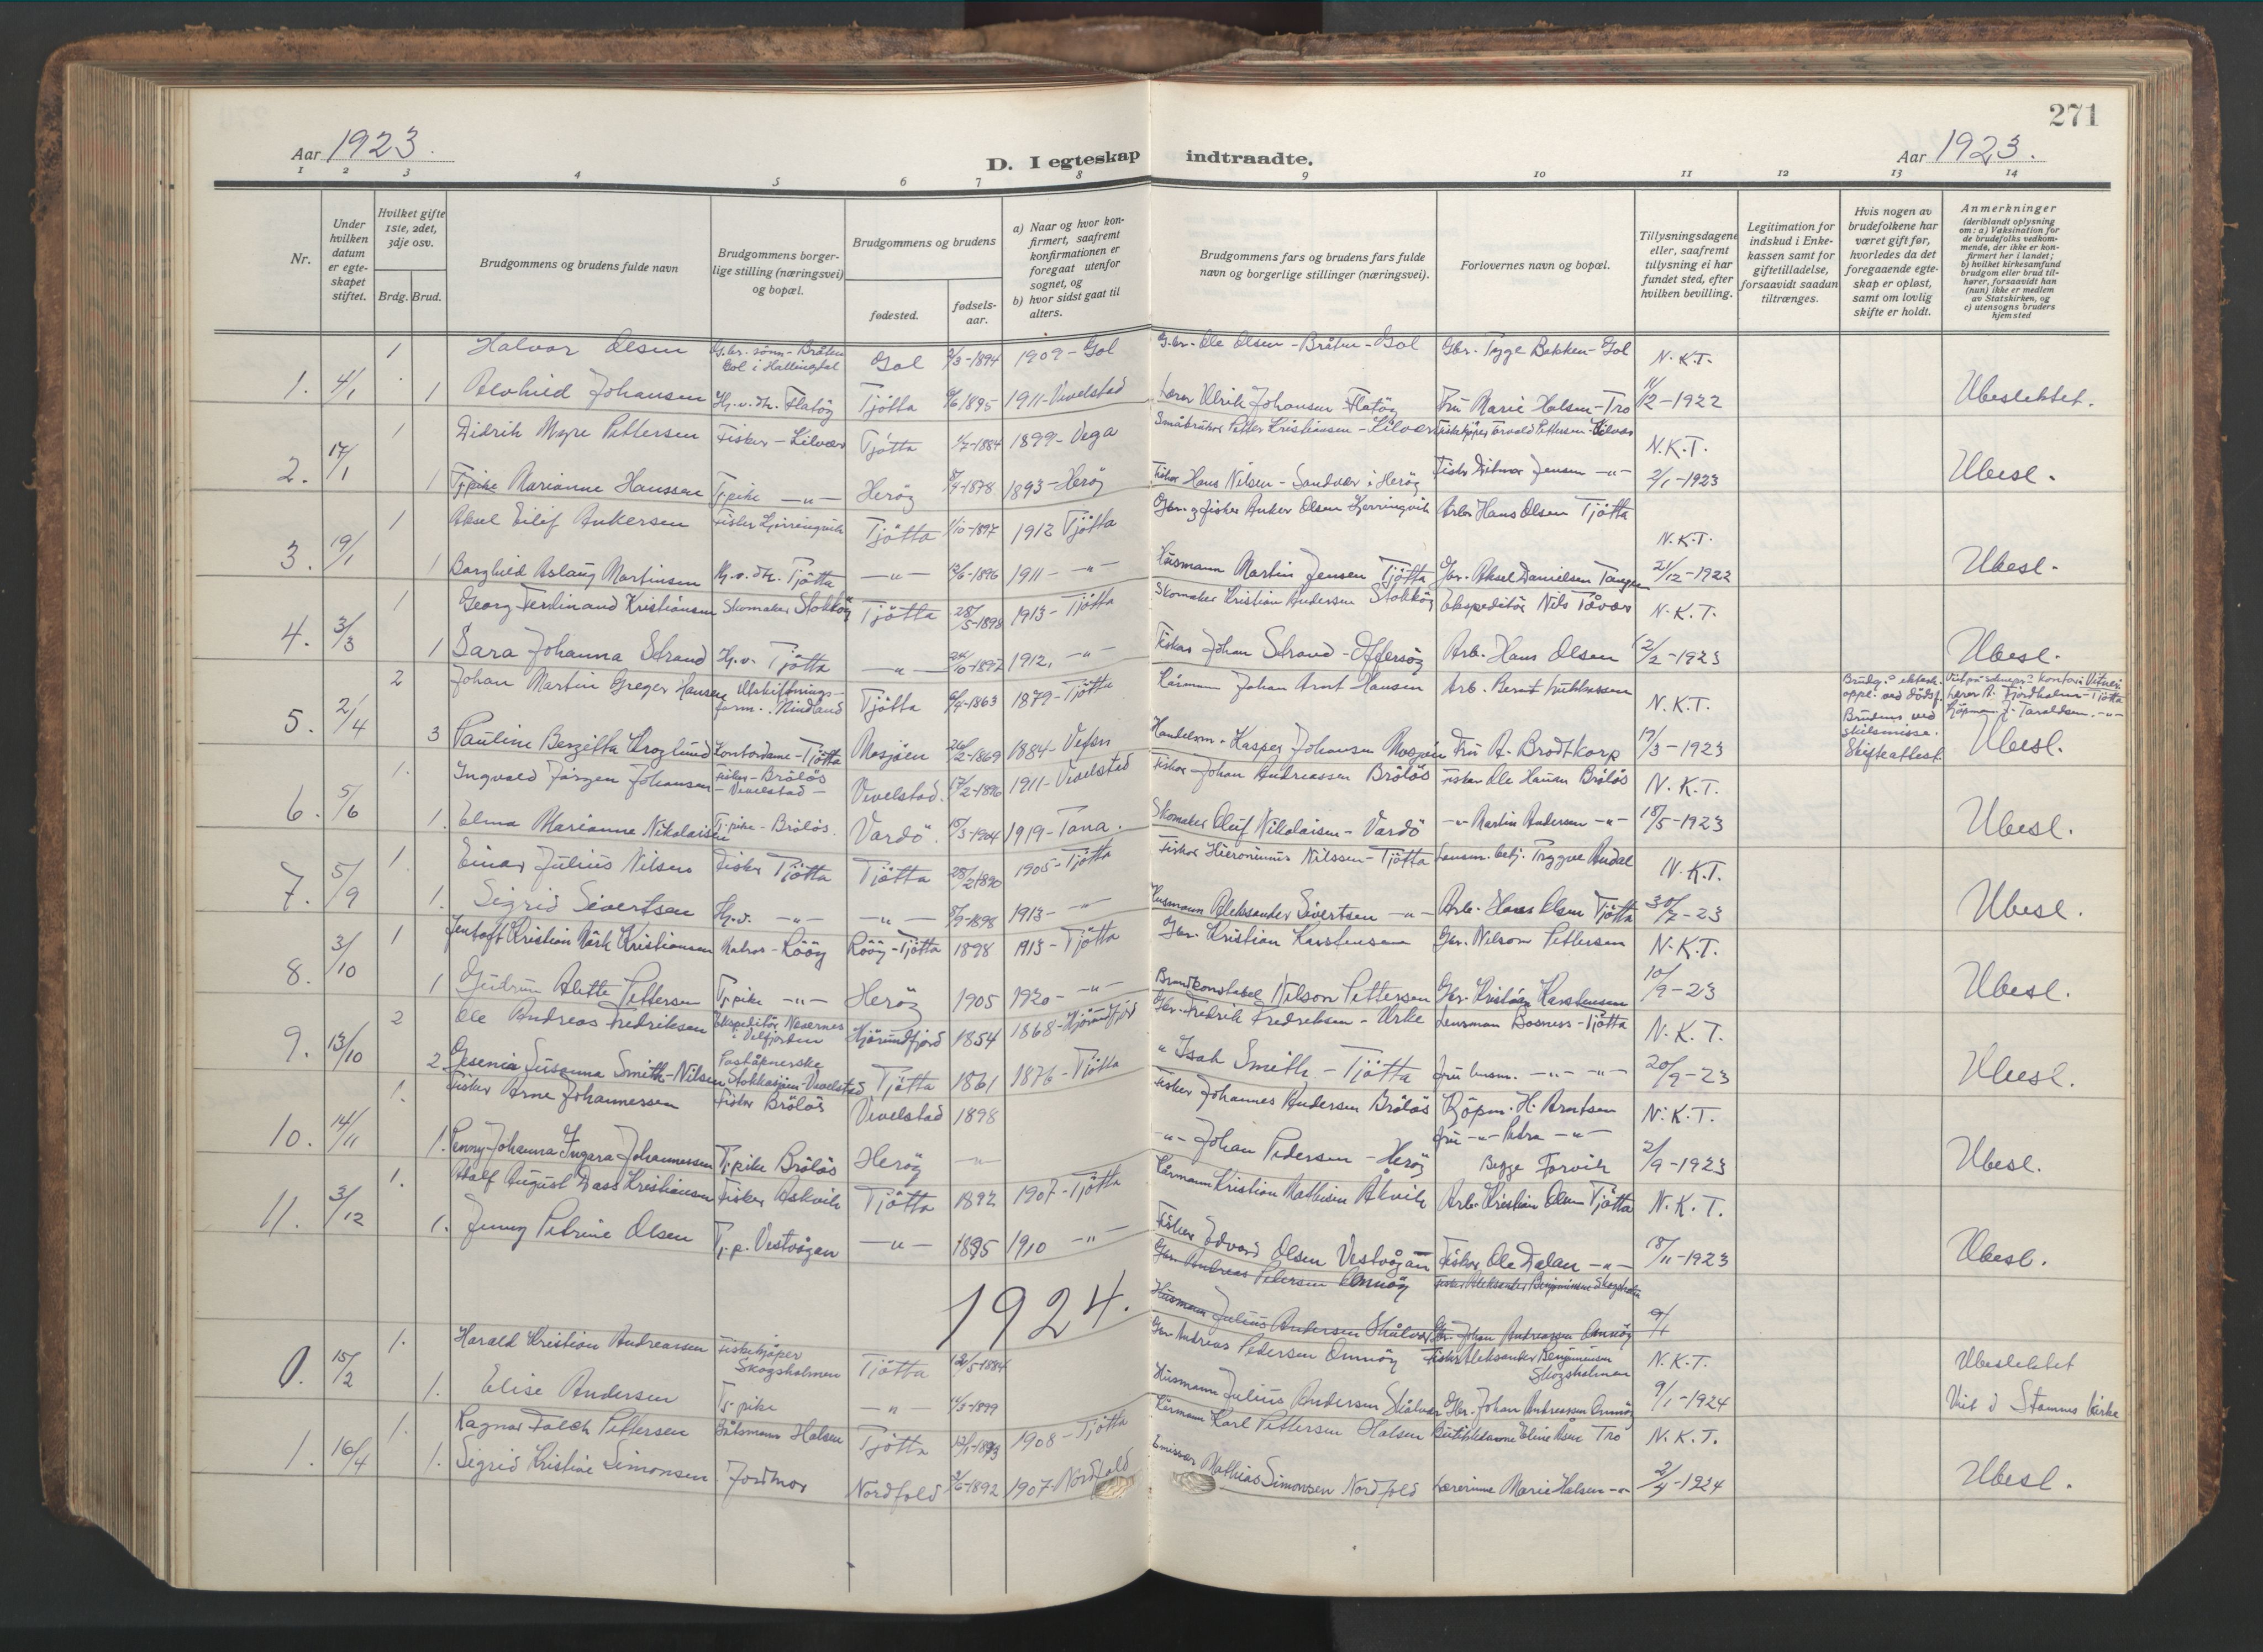 271
Aar 1923.
D. I egteskap indtraadte.
Aar 1923.
1 2 3 4 5 6 7 8 9 10 11 12 13 14
Nr.
Under hvilken datum er egteskapet stiftet.
Hvilket gifte 1ste, 2det, 3dje osv.
Brdg. Brud.
Brudgommens og brudens fulde navn
Brudgommens borgerlige stilling (næringsvei) og bopæl.
Brudgommens og brudens
fødested.
fødsels-aar.
a) Naar og hvor konfirmert, saafremt konfirmationen er foregaat utenfor sognet, og
b) hvor sidst gaat til alters.
Brudgommens fars og brudens fars fulde navn og borgerlige stillinger (næringsvei).
Forlovernes navn og bopæl.
Tillysningsdagene eller, saafremt tillysning ei har fundet sted, efter hvilken bevilling.
Legitimation for indskud i Enkekassen samt for giftetilladelse, forsaavidt saadan tiltrænges.
Hvis nogen av brudefolkene har været gift før, hvorledes da det foregaaende egteskap er opløst, samt om lovlig skifte er holdt.
Anmerkninger
(deriblandt oplysning om: a) Vaksination for de brudefolks vedkommende, der ikke er konfirmert her i landet;
b) hvilket kirkesamfund brudgom eller brud tilhører, forsaavidt han (hun) ikke er medlem av Statskirken, og
c) utensogns bruders hjemsted
1 Halvor Olsen G.br. sønn - Bråten Gol i Hallingdal Gol 2/3-1894 1909 - Gol G.br. Ole Olsen - Bråten - Gol Gbr. Tygge Bekken - Gol N. K. T.
1. 4/1 1 Alvhild Johansen Hj.v. dtr. Flatöy Tjötta 6/6 1895 1911 - Vevelstad Lærer Ulrik Johansen Flatöy Fru Marie Halsen - Tro 11/12-1922 Ubeslektet.
1 Didrik Myre Pettersen Fisker - Lilvær Tjötta 1/7-1884 1899 - Vega Småbruker Petter Kristiansen - Lilvær Fiskekjöper Torvald Pettersen - Lilvær N.K.T.
2. 17/1 1 Tj.pike Marianne Hanssen Tj.pike -"- Heröy 8/4-1878 1893 - Heröy Fisker Hans Nilsen - Sandvær i Heröy Fisker Ditmar Jensen -"- 2/1-1923 Ubesl.
1 Aksel Eilif Ankersen Fisker Kjerringvik Tjötta 1/10-1897 1912 Tjötta Gbr. og fisker Anker Olsen Kjerringvik Arbr Hans Olsen Tjötta N.K.T.
3. 19/1 1 Borghild Aslaug Martinsen Hj.v. dtr. Tjötta -"- 1896 1911 -"- Husmann Martin Jensen Tjötta Gbr. Aksel Danielsen Tangen 21/12-1922 Ubesl.
1 Georg Ferdinand Kristiansen Skomaker Stokköy Tjötta 28/5-1893 1913 - Tjötta Skomaker Kristian Andersen Stokköy Ekspeditör Nils Tåvær N.K.T.
4. 3/3 1 Sara Johanna Strand Hj.v. Tjötta -"- 1897 1912, -"- Fisker Johan Strand - Offersöy Arb. Hans Olsen 12/2-1923 Ubesl.
2 Johan Martin Greger Hansen Utskiftningsform. Mindland Tjötta 6/4-1863 1879 - Tjötta Kårmann Johan Arnt Hansen Arb. Bernt N.K.T. Brudg. ektesk. oppl. ved dödsf. Viet på kontor. Vitner: Lærer A. Fjordholm - Tjötta
5. 2/4 3 Pauline Bergitta Kroglund Kontordame - Tjötta Mosjöen 26/2-1869 1884 - Vefsn Handelsm. Kasper Johansen Mosjöen Fru A. Brodtkorp 17/3-1923 Brudens ved skilsmisse. Skifteattest. Kjöpm. J. Taraldsen -"- Ubesl.
1. Ingvald Jörgen Johansen Fisker - Brölös - Vevelstad - Vevelstad. 17/2-1896 1911 - Vevelstad Fisker Johan Andreassen Brölös Fisker Ole Hansen Brölös N.K.T.
6. 5/6 1. Elma Marianne Nikolaisen Tj.pike - Brölös. Vardö. 15/3-1904 1919 - Tana. Skomaker Oluf Nikolaisen - Vardö -"- Martin Andersen -"- 18/5-1923 Ubesl.
1. Einar Julius Nilsen Fisker Tjötta Tjötta 28/2 1890 1905 - Tjötta Fisker Hieronimus Nilssen - Tjötta Lensm. betj. Tryggve Andal N.K.T.
7. 5/9 1. Sigrid Sivertsen Hj.v. -"- -"- 8/9-1898 1913 - -"- Husmann Aleksander Sivertsen -"- Arb. Hans Olsen Tjötta 30/7-23 Ubesl.
1 Jentoft Kristian Mörk Kristiansen Matros - Rööy Rööy - Tjötta 1898 1913 - Tjötta Gbr. Kristian Karstensen Gbr. Nilson Pettersen N.K.T.
8. 3/10 1 Gudrun Alette Pettersen Tj.pike -"- Heröy 1905 1920 - -"- Brandkonstabel Nilson Pettersen Gbr. Kristian Karstensen 10/9-23 Ubesl.
2 Ole Andreas Fredriksen Ekspeditör Nevernes i Velfjorden Hjörundfjord 1854 1868 - Hjörundfjord Gbr. Fredrik Fredriksen - Urke Lensman Bosness - Tjötta N.K.T.
9. 13/10 2 Gesenia Susanna Smith-Nilsen Poståpnerske Stokkasjöen Vevelstad Tjötta 1861 1876 - Tjötta " Isak Smith - Tjötta Fru lensm. -"- -"- 20/9-23 Ubesl.
1. Fisker Arne Johannessen Fisker Brölös Vevelstad 1898 Fisker Johannes Andersen Brölös Kjöpm. H. Arntsen N.K.T.
10. 14/11 1. Penny Johanna Ingara Johannessen Tj.pike Brölös Heröy -"- -"- Johan Pedersen - Heröy Fru -"- Petra -"- Begge Forvik 2/9-1923 Ubesl.
1. Adolf August Dass Kristiansen Fisker Askvik Tjötta 1892 1907 - Tjötta Kårmann Kristian Mathisen Åkvik Arb. Kristian Olsen Tjötta N.K.T.
11. 3/12 1. Jenny Petrine Olsen Tj.p. Vestvågen -"- 1895 1910 -"- Fisker Edvard Olsen Vestvågen Fisker Ole Dalan -"- 18/11-1923 Ubesl.
Gbr. Andreas Pedersen Omnöy Fisker Aleksander Benjaminsen Skogsholmen
1924.
Husmann Julius Andersen Skålvær Gbr. Johan Andreassen Omnöy 9/1
1. Harald Kristian Andreassen Fiskekjöper Skogsholmen Tjötta 12/5 1884 Gbr. Andreas Pedersen Omnöy Fisker Aleksander Benjaminsen Skogsholmen N.K.T. Ubeslektet
0. 15/2 1. Elise Andersen Tj.pike -"- 11/3-1899 Husmann Julius Andersen Skålvær Gbr. Johan Andreassen Omnöy 9/1-1924 Viet i Stamnes kirke
1. Ragnar Falch Pettersen Båtsmann Halsen Tjötta 1893 1908 - Tjötta Kårmann Karl Pettersen Halsen Butikkdame Eline Åsen Tro N.K.T.
1. 16/4 1. Sigrid Kristine Simonsen Jordmor Nordfold 2/6-1892 1907 - Nordfold Emissær Mathias Simonsen Nordfold Lærerinne Marie Halsen -"- 2/4-1924 Ubesl.